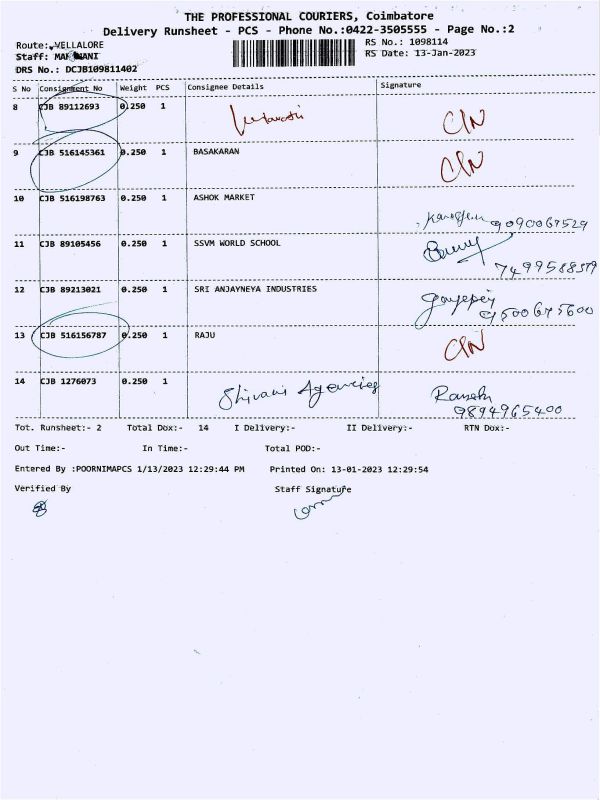 THE PROFESSIONAL COURIERS, Coimbatore
Delivery Runsheet - PCS - Phone No.:0422-3505555 - Page No.:2
Route: VELLALORE RS No.: 1098114
Staff: RS Date: 13-Jan-2023
DRS No.: DCJB109811402
S No Consignment No Weight PCS Consignee Details Signature
8 CJB 89112693 0.250 1 C/N
9 CJB 516145361 0.250 1 BASAKARAN C/N
10 CJB 516198763 0.250 1 ASHOK MARKET
9090067529
11 CJB 89105456 0.250 1 SSVM WORLD SCHOOL
12 CJB 89213021 0.250 1 SRI ANJAYNEYA INDUSTRIES
9500675600
13 CJB 516156787 0.250 1 RAJU C/N
14 CJB 1276073 0.250 1 Shivani Agencies
9894965400
Tot. Runsheet:- 2 Total Dox:- 14 I Delivery:- II Delivery:- RTN Dox:-
Out Time:- In Time:- Total POD:-
Entered By :POORNIMAPCS 1/13/2023 12:29:44 PM Printed On: 13-01-2023 12:29:54
Verified By Staff Signature